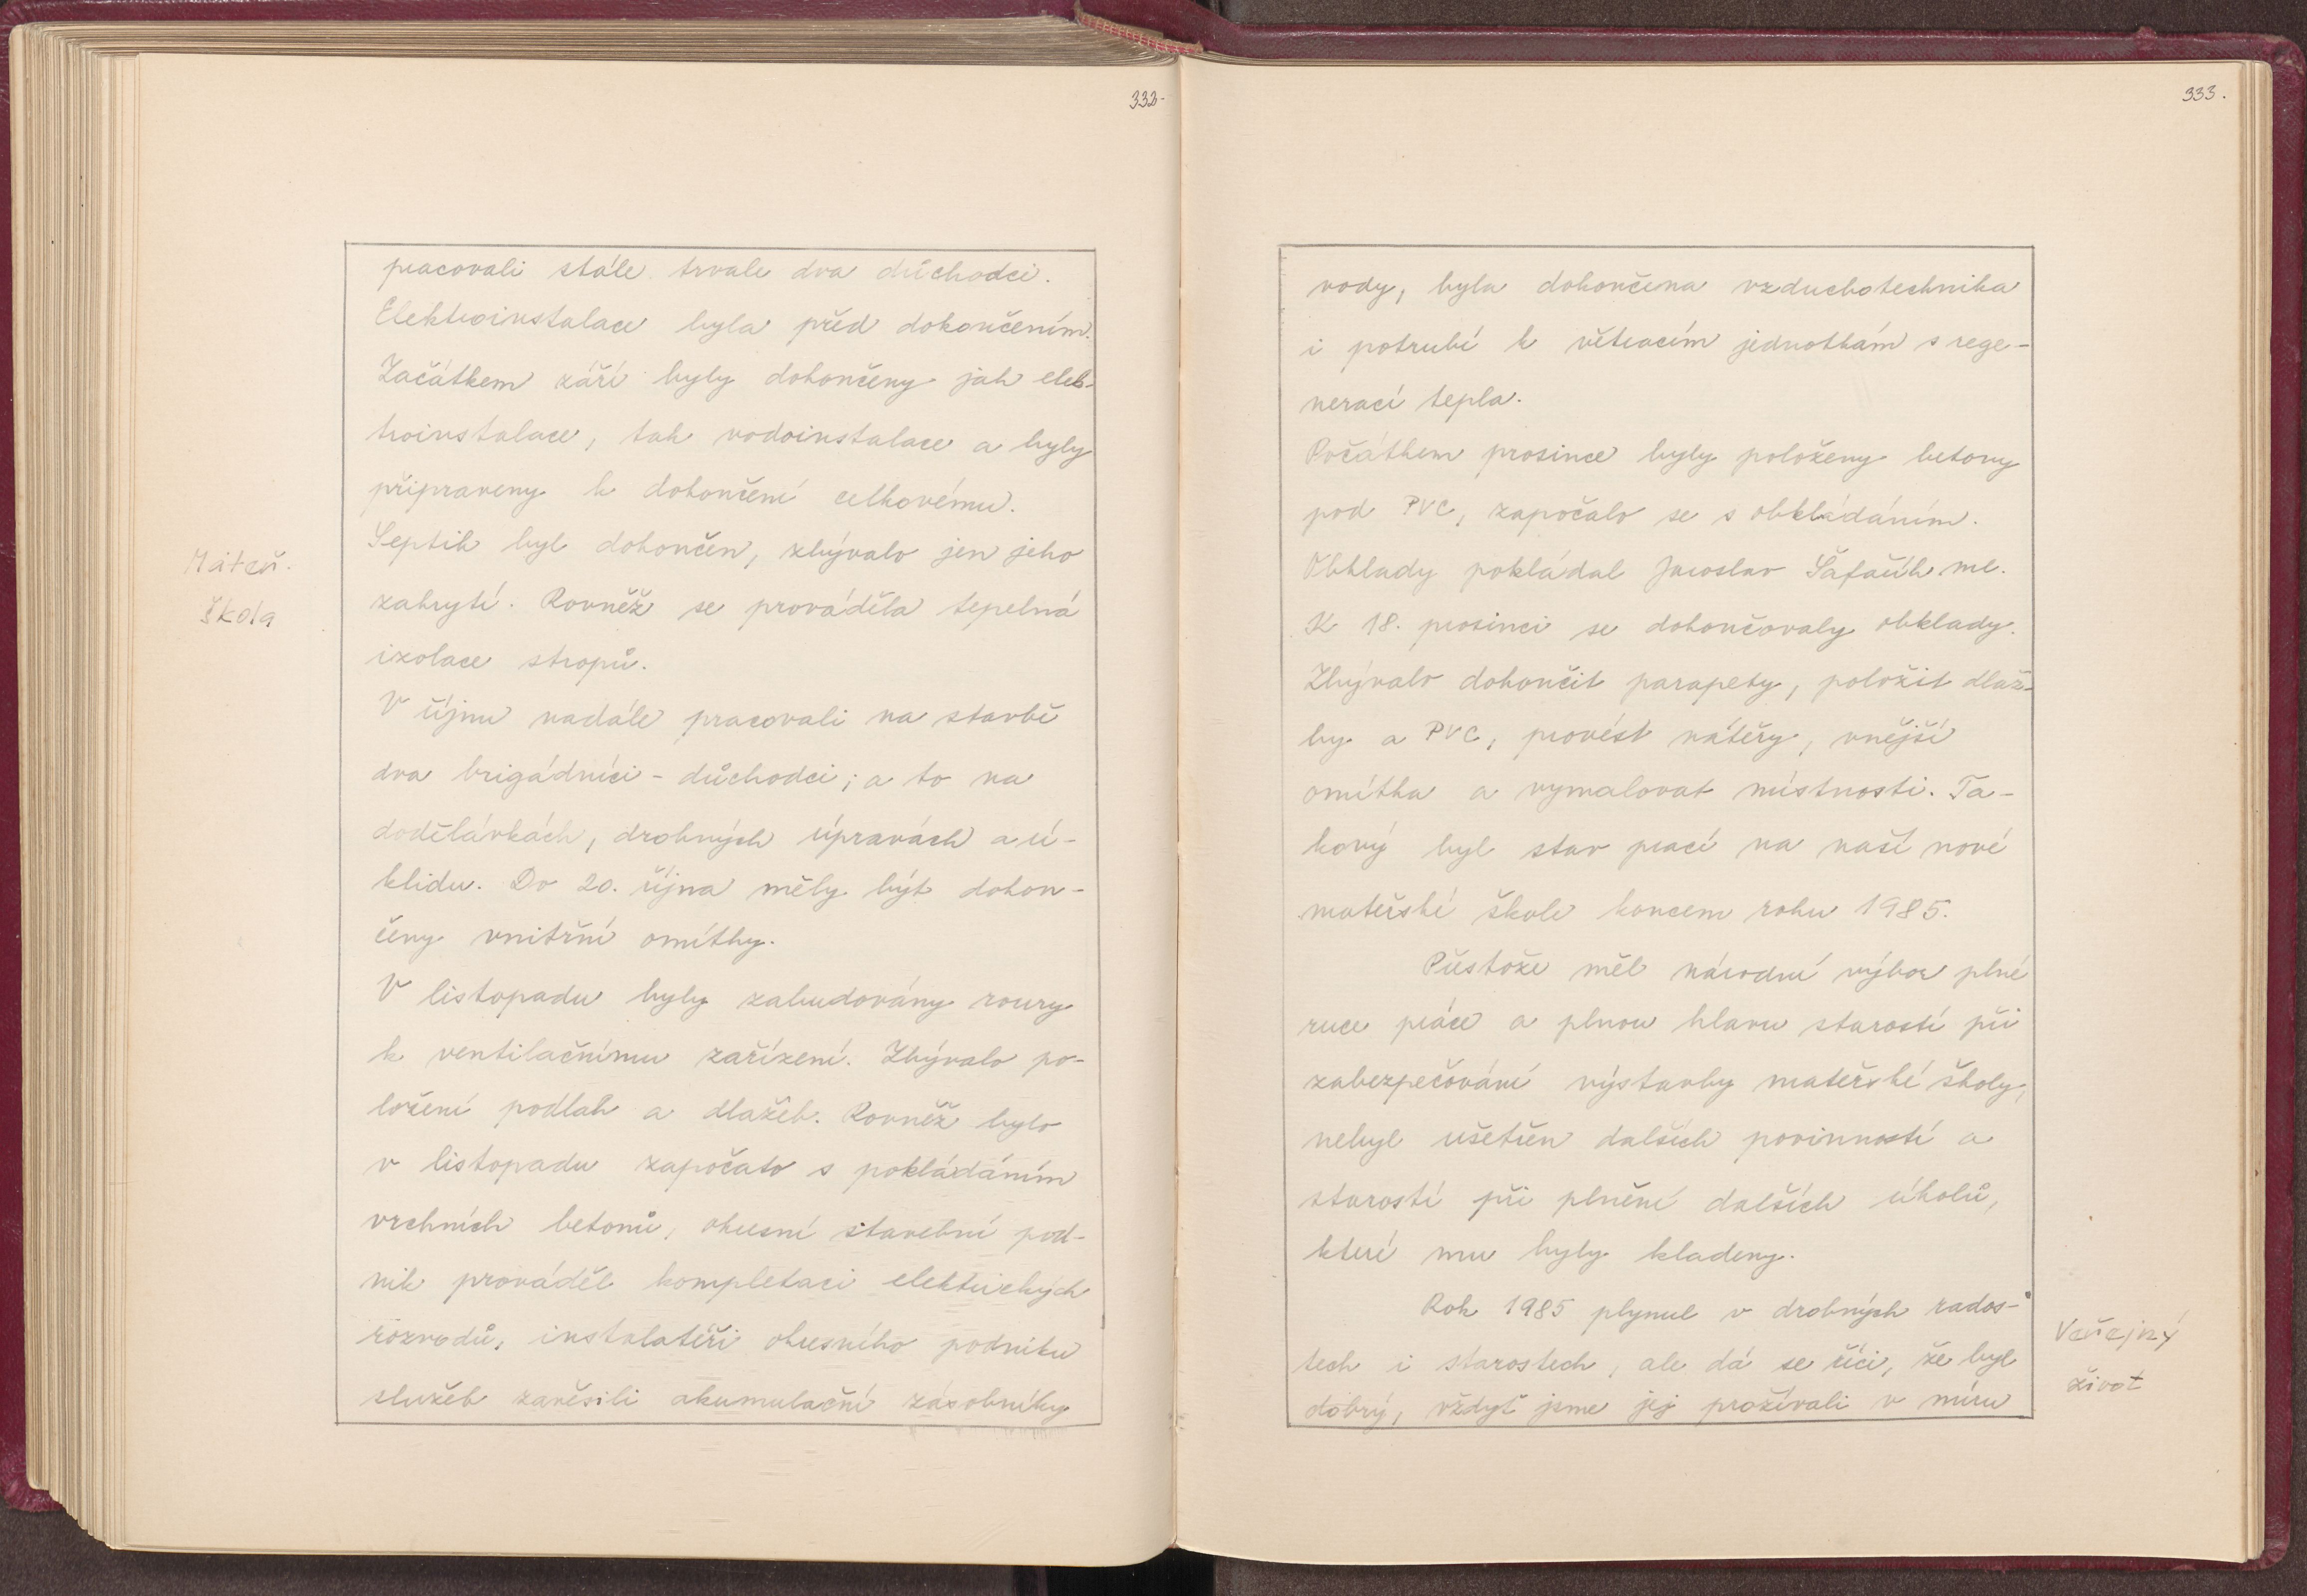 332.
pracovali stále trvale dva důchodci.
Elektroinstalace byla před dokončením.
Začátkem září byly dokončeny jak elek-
troinstalace, tak vodoinstalace a byly
připraveny k dokončení celkovému.
Septik byl dokončen, zbývalo jen jeho
Mateř.
škola
zakrytí. Rovněž se prováděla tepelná
izolace stropů.
V říjnu nadále pracovali na stavbě
dva brigádníci - důchodci; a to na
dodělávkách, drobných úpravách a ú-
klidu. Do 20. října měly být dokon-
čeny vnitřní omítky.
V listopadu byly zabudovány roury
k ventilačnímu zařízení. Zbývalo po-
ložení podlah a dlažeb. Rovněž bylo
v listopadu započato s pokládáním
vrchních betonů, okresní stavební pod-
nik prováděl kompletaci elektrických
rozvodů, instalatéři okresního podniku
služeb zavěsili akumulační zásobníky
333.
vody, byla dokončena vzduchotechnika
i potrubí k větracím jednotkám s rege-
nerací tepla.
Počátkem prosince byly položeny betony
pod PVC, započalo se s obkládáním.
Obklady pokládal Jaroslav Šafařík ml.
K 18. prosinci se dokončovaly obklady.
Zbývalo dokončit parapety, položit dlaž-
by a PVC, provést nátěry, vnější
omítka a vymalovat místnosti. Ta-
kový byl stav prací na naší nové
mateřské škole koncem roku 1985.
Přestože měl národní výbor plné
ruce práce a plnou hlavu starostí při
zabezpečování výstavby mateřské školy,
nebyl ušetřen dalších povinností a
starostí při plnění dalších úkolů,
které mu byly kladeny.
Rok 1985 plynul v drobných rados-
tech i starostech, ale dá se říci, že byl
dobrý, vždyť jsme jej prožívali v míru
Veřejný
život